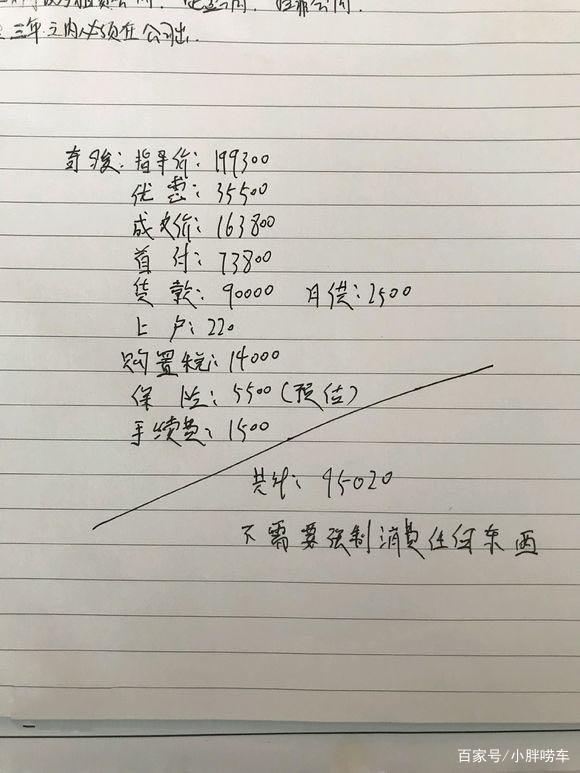 三年之内必须在公司出
奇骏：指导价：199300
优惠：35500
成交价：163800
首付：73800
货款：90000 月供：2500
上户：220
购置税：14000
保险：5500（预估）
手续费：1500
共计：95020
不需要强制消费任何东西
百家号/小胖唠车